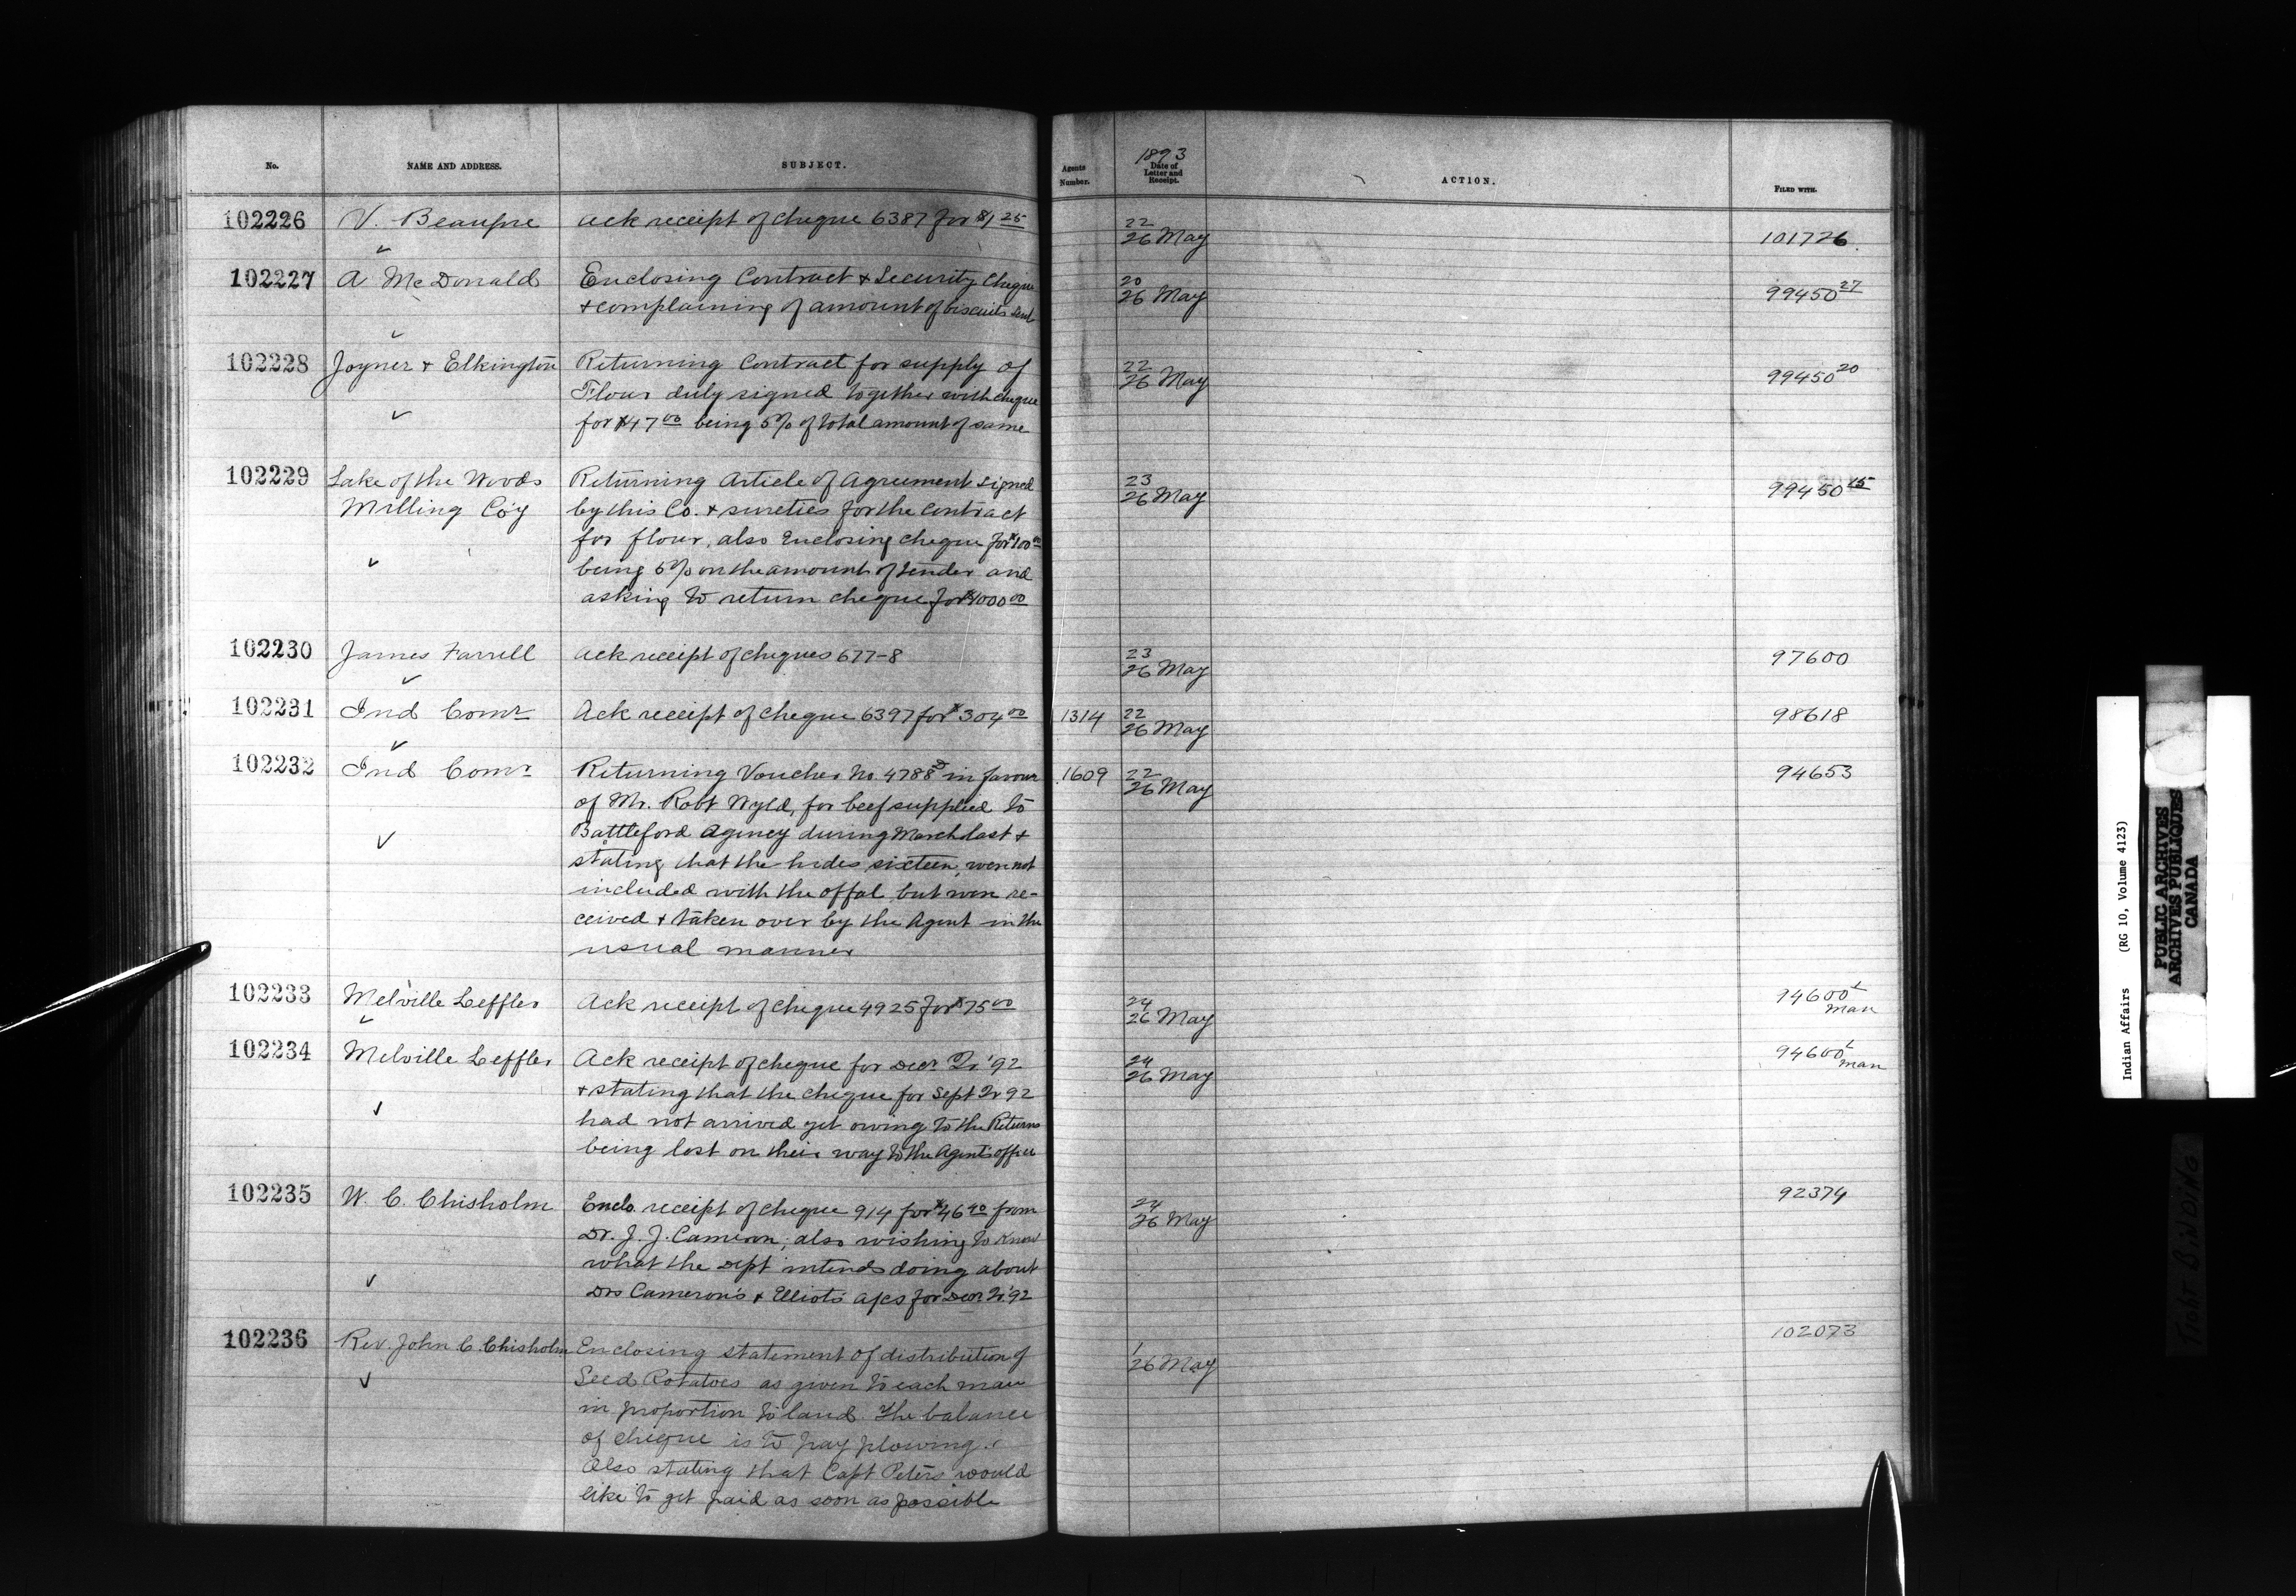 No. NAME AND ADDRESS. SUBJECT. Agents Number. 1893 Date of Letter and Receipt. ACTION. FILED WITH.
102226 V. Beaupre Ack receipt of cheque 6387 for $1 25 22 26 May 101726
102227 A McDonald Enclosing Contract & Security Cheque 20 26 May 99450 27
& complaining of amount of biscuits sent
102228 Joyner & Elkington Returning Contract for supply of 22 26 May 99450 20
Flour duly signed together with cheque
for $47 00 being 5% of total amount of same
102229 Lake of the Woods Returning Article of Agreement signed 23 26 May 99450 15
Milling Co'y by this Co. & sureties for the contract
for flour, also Enclosing cheque for $100 00
being 5% on the amount of tender and
asking to return cheque for $1000 00
102230 James Farrell Ack receipt of cheques 677-8 23 26 May 97600
102231 Ind Comr Ack receipt of cheque 6397 for $304 00 1314 22 26 May 98618
102232 Ind Comr Returning Voucher No. 4788 in favour 1609 22 26 May 94653
of Mr. Robt Wyld, for beef supplied to
Battleford Agency during March last &
stating that the hides sixteen, were not
included with the offal but were re-
ceived & taken over by the Agent in the
usual manner
102233 Melville Leffler Ack receipt of cheque 4925 for $75 00 24 26 May 94600 L man
102234 Melville Leffler Ack receipt of cheque for Decr Qr '92 24 26 May 94600 L man
& stating that the cheque for Sept Qr 92
had not arrived yet owing to the Returns
being lost on their way to the Agent's office
102235 W. C. Chisholm Enclo. receipt of cheque 914 for $46 40 from 24 26 May 92374
Dr. J. J. Cameron; also wishing to know
what the Dept intends doing about
Drs Cameron's & Elliots a/cs for Decr Qr '92
102236 Rev. John C. Chisholm Enclosing statement of distribution of 1 26 May 102073
Seed Potatoes as given to each man
in proportion to land. The balance
of cheque is to pay plowing.
Also stating that Capt Peters would
like to get paid as soon as possible
Indian Affairs (RG 10, Volume 4123)
PUBLIC ARCHIVES
ARCHIVES PUBLIQUES
CANADA
TIGHT BINDING